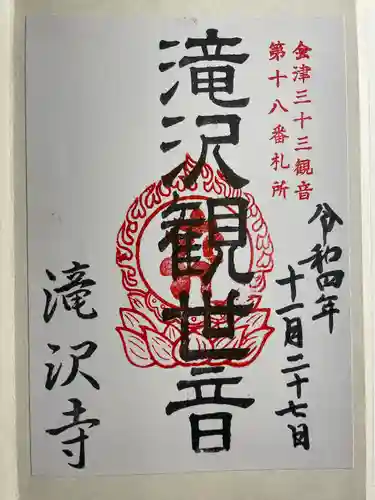 會津三十三觀音
第十八番札所
令和四年
十一月二十七日
滝沢観世音
滝沢寺